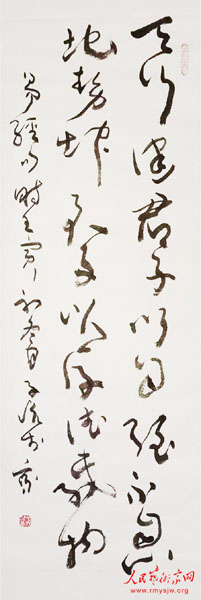 天行健君子以自强不息
地势坤君子以厚德载物
易经句 时壬寅初冬月
人民艺术家网
www.rmysjw.org